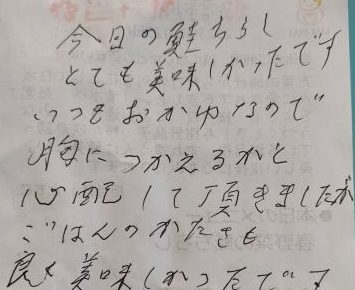 今日の鮭ちらし
とても美味しかったです
いつもおかゆなので
胸につかえるかと
心配して頂きましたが
ごはんのかたさも
良く美味しかったです